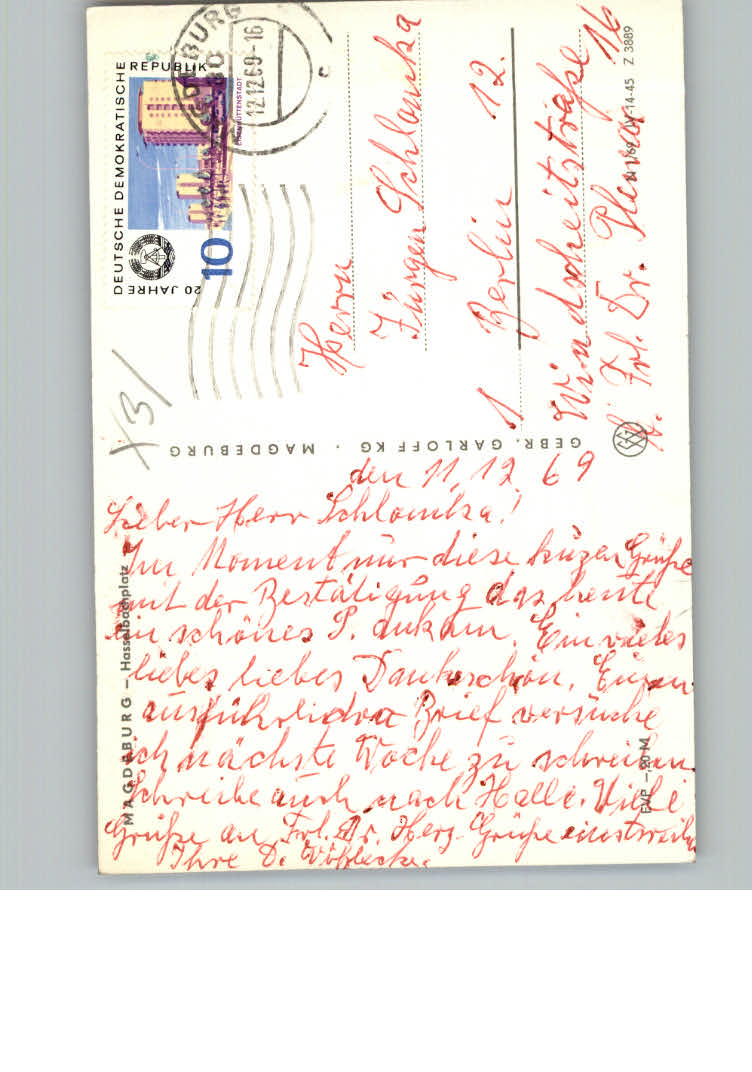 DEUTSCHE DEMOKRATISCHE REPUBLIK
20 JAHRE
10
EISENHÜTTENSTADT
12.12.69-16
c
Herrn
Jürgen Schlomka
1 Berlin 12.
Windscheitstraße 16
b. Frl. Dr.
Z 3889
GEBR. GARLOFF KG · MAGDEBURG
MAGDEBURG – Hasselbachplatz
EVP –,20 M
den 11.12.69
Lieber Herr Schlomka!
Im Moment nur diese kuzen Grüße
mit der Bestätigung das heute
ein schönes P. ankam. Ein vieles
liebes liebes Dankeschön. Einen
ausführlichen Brief versuche
ich nächste Woche zu schreiben.
Schreibe auch nach Halle. Viele
Grüße an Frl. Dr. Herz. Grüße einstweilen
Ihre D.